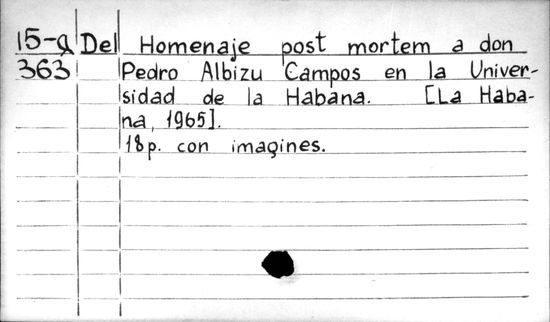 15-a Del Homenaje post mortem a don
363 Pedro Albizu Campos en la Univer-
sidad de la Habana. [La Haba-
na, 1965].
18p. con imagines.